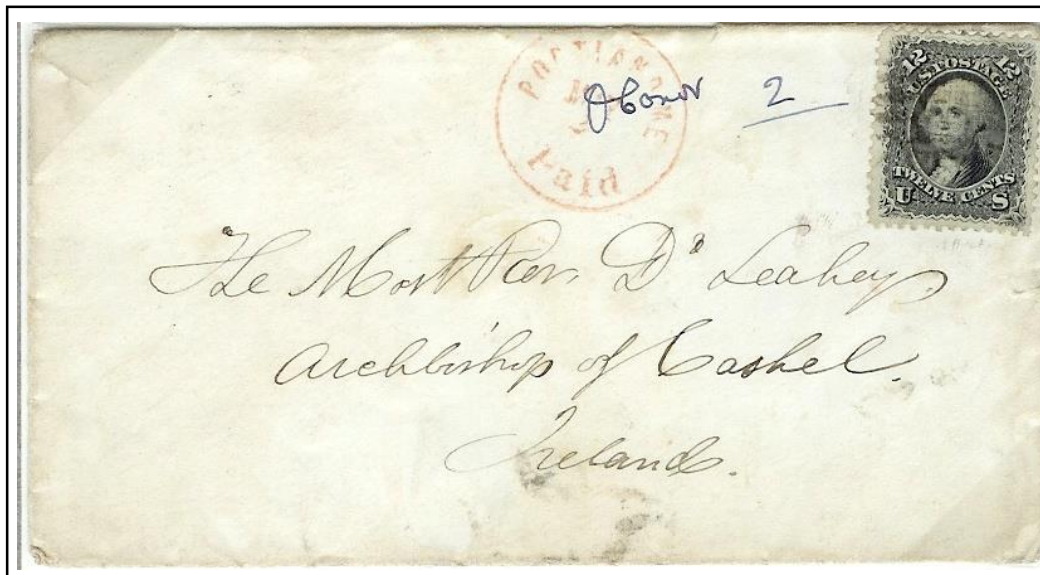 PORTLAND ME
Paid
OConor 2
12 12
U.S. POSTAGE
TWELVE CENTS
U S
The Most Rev. Dr Leahey
Archbishop of Cashel.
Ireland.